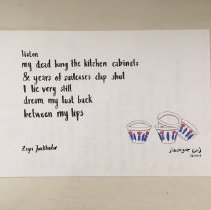 listen
my dead bang the kitchen cabinets
80 years of suitcases clap shut
I lie very still
dream my lost back
between my lips
Zeyn Joukhadar